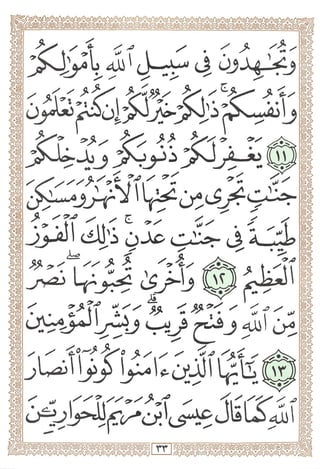 وَتُجَٰهِدُونَ فِي سَبِيلِ ٱللَّهِ بِأَمۡوَٰلِكُمۡ
وَأَنفُسِكُمۡۚ ذَٰلِكُمۡ خَيۡرٌ لَّكُمۡ إِن كُنتُمۡ تَعۡلَمُونَ
١١ يَغۡفِرۡ لَكُمۡ ذُنُوبَكُمۡ وَيُدۡخِلۡكُمۡ
جَنَّٰتٍ تَجۡرِي مِن تَحۡتِهَا ٱلۡأَنۡهَٰرُ وَمَسَٰكِنَ
طَيِّبَةً فِي جَنَّٰتِ عَدۡنٍۚ ذَٰلِكَ ٱلۡفَوۡزُ
ٱلۡعَظِيمُ ١٢ وَأُخۡرَىٰ تُحِبُّونَهَاۖ نَصۡرٌ
مِّنَ ٱللَّهِ وَفَتۡحٌ قَرِيبٌۗ وَبَشِّرِ ٱلۡمُؤۡمِنِينَ
١٣ يَٰٓأَيُّهَا ٱلَّذِينَ ءَامَنُواْ كُونُوٓاْ أَنصَارَ
ٱللَّهِ كَمَا قَالَ عِيسَى ٱبۡنُ مَرۡيَمَ لِلۡحَوَارِيِّـۧنَ
٣٣